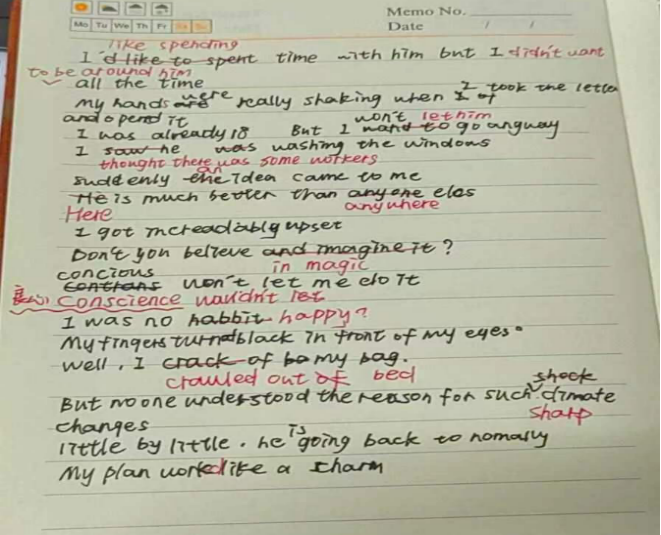 Memo No.
Mo Tu We Th Fr Sa Su
Date / /
like spending
I'd like to spent time with him but I didn't want
to be around him
all the time
were I took the letter
My hands are really shaking when I of
and opend it won't let him
I was already 18 But I want to go anyway
I saw he was washing the windows
thought there was some workers
an
suddenly the idea came to me
He is much better than anyone elos
Here anywhere
I got increadably upset
Don't you believe and imagine it?
concious in magic
won't let me clo it
良心 conscience wouldn't let
I was no habbit happy?
My fingers turned black in front of my eyes.
Well, I crack of bo my bag.
crawled out of bed
shock
But no one understood the reason for such climate
sharp
changes
is
little by little. he going back to nomally
My plan worked like a charm